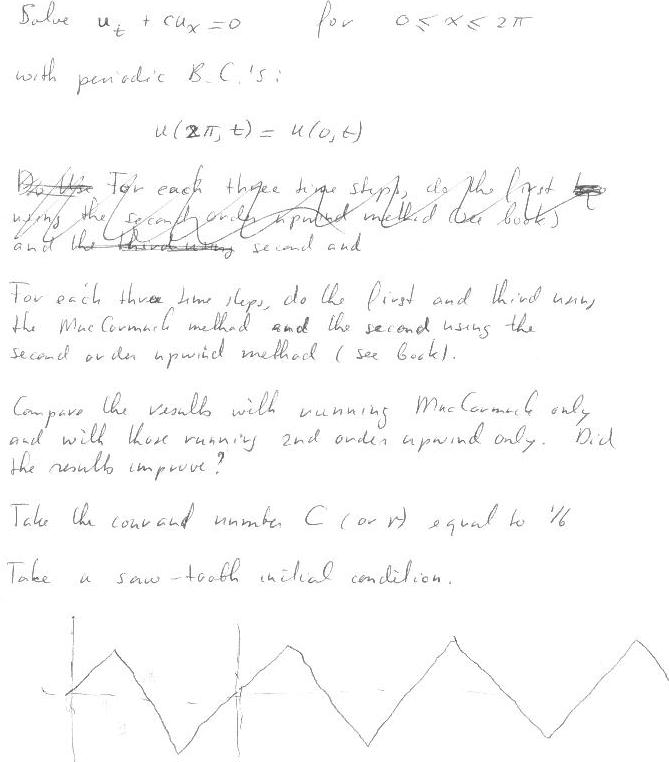 Solve u_t + cu_x = 0 for 0 ≤ x ≤ 2π
with periodic B.C.'s:
u(2π, t) = u(0, t)
For each three time steps, do the first
using the second order upwind method (see book)
and the third using second and
For each three time steps, do the first and third using
the MacCormack method and the second using the
second order upwind method (see book).
Compare the results with running MacCormack only
and with those running 2nd order upwind only. Did
the results improve?
Take the courand number C (or r) equal to 1/6
Take a saw-tooth initial condition.